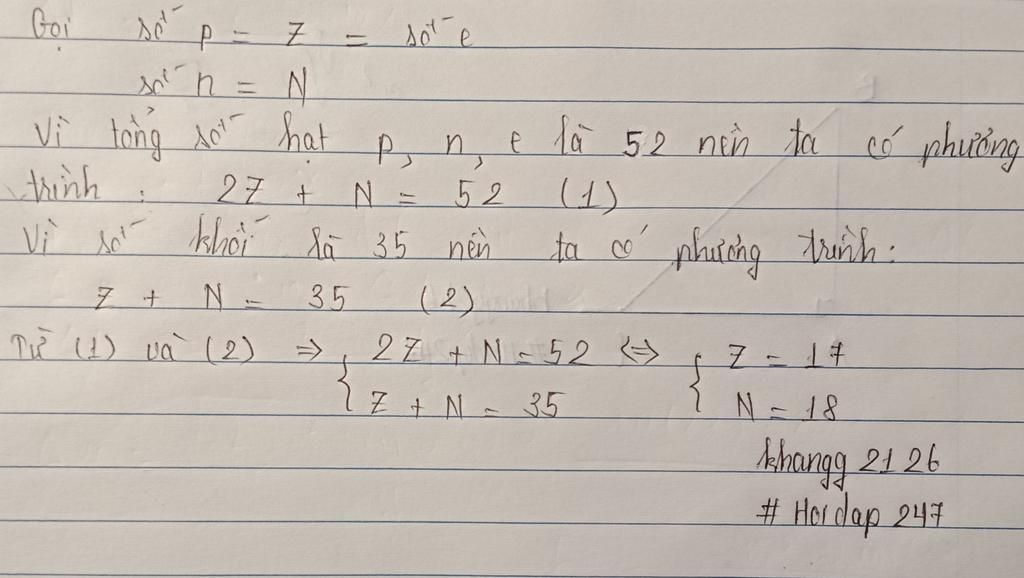 Gọi số p = Z = số e
số n = N
Vì tổng số hạt p, n, e là 52 nên ta có phương
trình: 2Z + N = 52 (1)
Vì số khối là 35 nên ta có phương trình:
Z + N = 35 (2)
Từ (1) và (2) ⇒ { 2Z + N = 52 ⇔ { Z = 17
Z + N = 35 N = 18
khangg 2126
# Hoidap 247